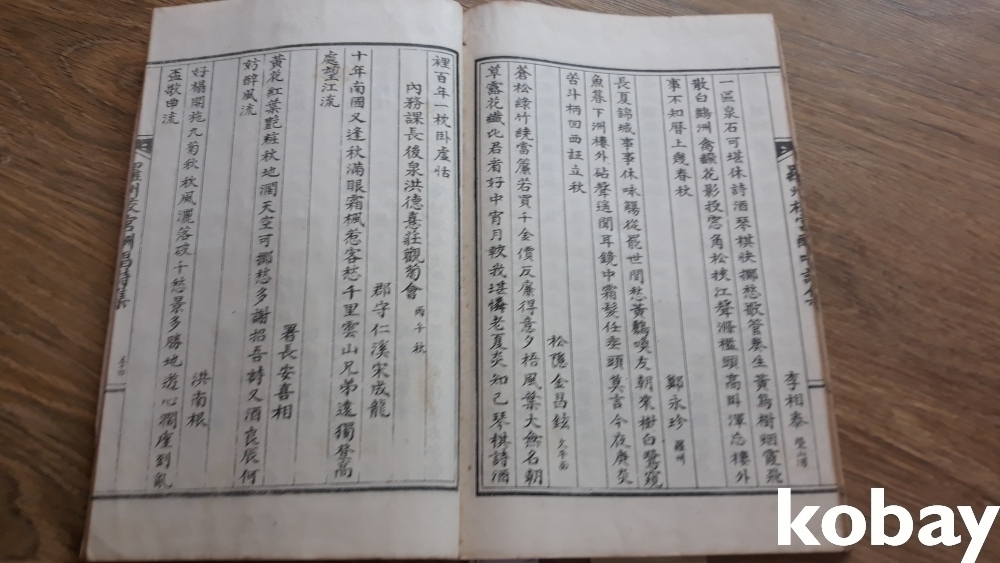 李相泰 榮山浦
一區泉石可堪休詩酒琴棋快擲愁歌管春生黃鳥樹烟霞飛
散白鷗洲禽蝶花影投窓角松檜江聲滌檻頭高臥渾忘樓外
事不知曆上幾春秋
鄭永珍 羅州
長夏錦城事事休味觴從罷世間愁黃鸝喚友朝來樹白鷺窺
魚暮下洲樓外砧聲遠聞耳鏡中霜髮任垂頭莫言今夜庚炎
苦斗柄回西証立秋
松隱金昌鉉
蒼松綠竹繞當簾若買千金價反廉得意夕梧風葉大無名朝
草露花纖比君有好中宵月較我堪憐老夏炎知己琴棋詩酒
裡百年一枕卦虛恬
內務課長後泉洪德憙莊觀菊會 丙午秋
郡守仁溪宋成龍
十年南國又逢秋滿眼霜楓惹客愁千里雲山兄弟遠獨登高
處望江流
署長安喜相
黃花紅葉艷粧秋地濶天空可擲愁多謝招吾詩又酒良辰何
妨醉風流
洪南根
好楊開花九菊秋秋風灑落破千愁景多勝地遊心濶座到亂
盃歌曲流
kobay